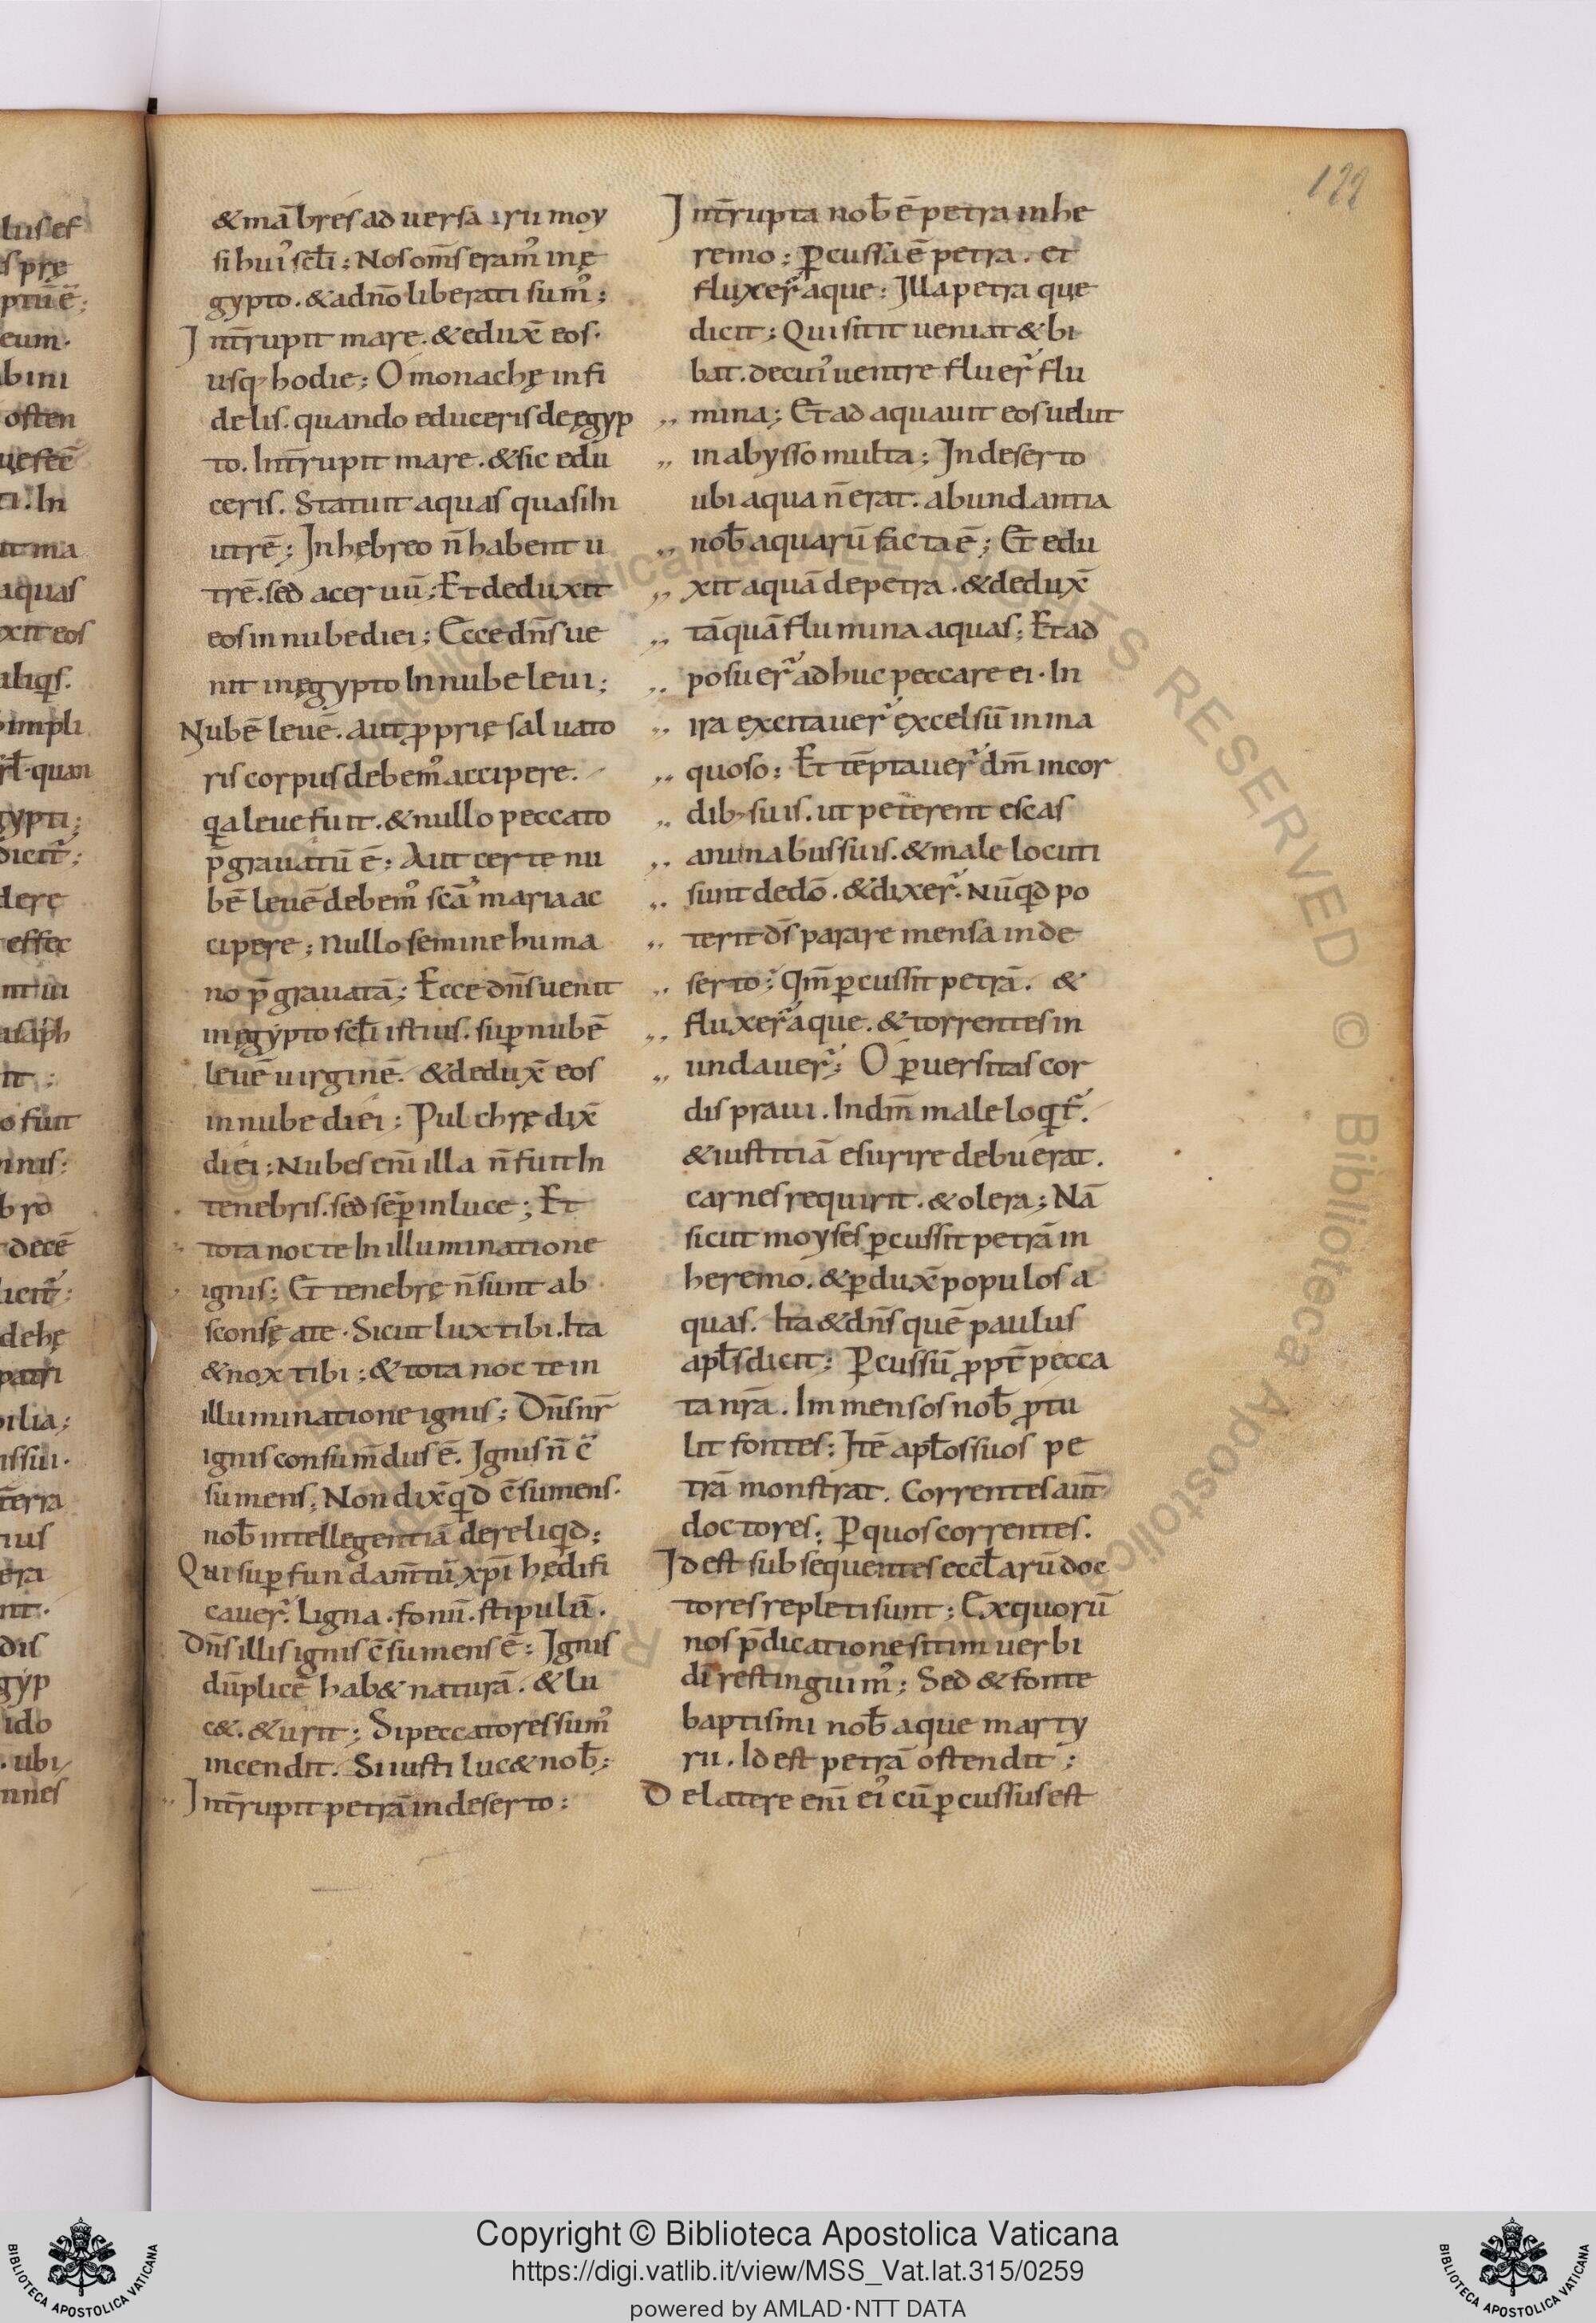 122
& mābres aduersarii moy
si hui᾽ scłi; Nos om̄s eram᾽ in ę
gypto. & a dn̄o liberati sum᾽;
Int̄rupit mare. & edux̄ eos.
usq; hodie; O monachę infi
delis. quando educeris de ęgyp
to. Int̄rupit mare. & sic edu
ceris. Statuit aquas quasi In
utrē; In hębreo n̄ habent u
trē. sed aceruū; Et deduxit
eos in nube diei; Ecce dn̄s ue
nit in ęgypto In nube leui;
Nubē leuē. aut ꝓprię saluato
ris corpus debem᾽ accipere.
qa leue fuit. & nullo peccato
p̄grauatū ē; Aut certe nu
bē leuē debem᾽ scā᾽ maria ac
cipere; nullo semine huma
no p̄grauatā; Ecce dn̄s uenit
in ęgypto scłi istius. suꝑ nubē
leuē uirginē. & dedux̄ eos
in nube diei; Pulchrę dix̄
diei; Nubes eni̅ illa n̄ fuit In
tenebris. sed sēꝑ in luce; Et
tota nocte In illuminatione
ignis; Et tenebrę n̄ sunt ab
sconsę a te. Sicut lux tibi. Ita
& nox tibi; & tota nocte in
illuminatione ignis; Dn̄s nr̄
ignis consum̄dus ē. Ignis n̄ c̄
sumens; Non dix̄ qd c̄sumens.
nob̄ intellegentiā dereliqd;
Qui suꝑ fundam̄tū xp̄i hędifi
cauer᾽. Ligna. fonū. stipulā.
Dn̄s illis ignis c̄sumens ē; Ignis
dūplicē hab& naturā. & lu
c&. & urit; Si peccatores sum᾽
incendit. Si iusti luc& nob̄;
Int̄rupit petrā in deserto;
Int̄rupta nob̄ ē petra in he
remo; ꝑcussa ē petra. et
fluxer᾽ aque; Illa petra quę
dicit; Qui sitit ueniat & bi
bat. de cui᾽ uentre fluer᾽ flu
mina; Et adaquauit eos uelut
in abysso multa; In deserto
ubi aqua n̄ erat. abundantia
nob̄ aquarū facta ē; Et edu
xit aquā de petra. & dedux̄
tāquā flumina aquas; Et ad
posuer᾽ adhuc peccare ei. In
ira excitauer᾽ excelsū in ina
quoso; Et tēptauer᾽ dm̄ in cor
dib; suis. ut peterent escas
animabus suis. & male locuti
sunt de dō. & dixer᾽. nūqd po
terit ds̄ parare mensa in de
serto; Qm̄ ꝑcussit petrā. &
fluxer᾽ aque. & torrentes in
undauer᾽; O ꝑuersitas cor
dis praui. In dm̄ male loqt᾽.
& iustitiā esurire debuerat.
carnes requirit. & olera; Nā
sicut moyses ꝑcussit petrā in
heremo. & ꝑdux̄ populos a
quas. Ita & dn̄s quē paulus
apłs dicit; Ꝑcussū ꝓpt̄ pecca
ta nr̄a. Immensos nob̄ ꝓtu
lit fontes; Itē apłos suos pe
trā monstrat. Correntes aut̄
doctores; Ꝑ quos correntes.
Id est subsequentes eccłarū doc
tores repleti sunt; Ex quorū
nos p̄dicatione sitim uerbi
dī restinguim᾽; Sed & fonte
baptismi nob̄ aque marty
rii. Id est petrā ostendit;
De latere eni̅ ei᾽ cū ꝑcussus est
Copyright © Biblioteca Apostolica Vaticana
https://digi.vatlib.it/view/MSS_Vat.lat.315/0259
powered by AMLAD·NTT DATA